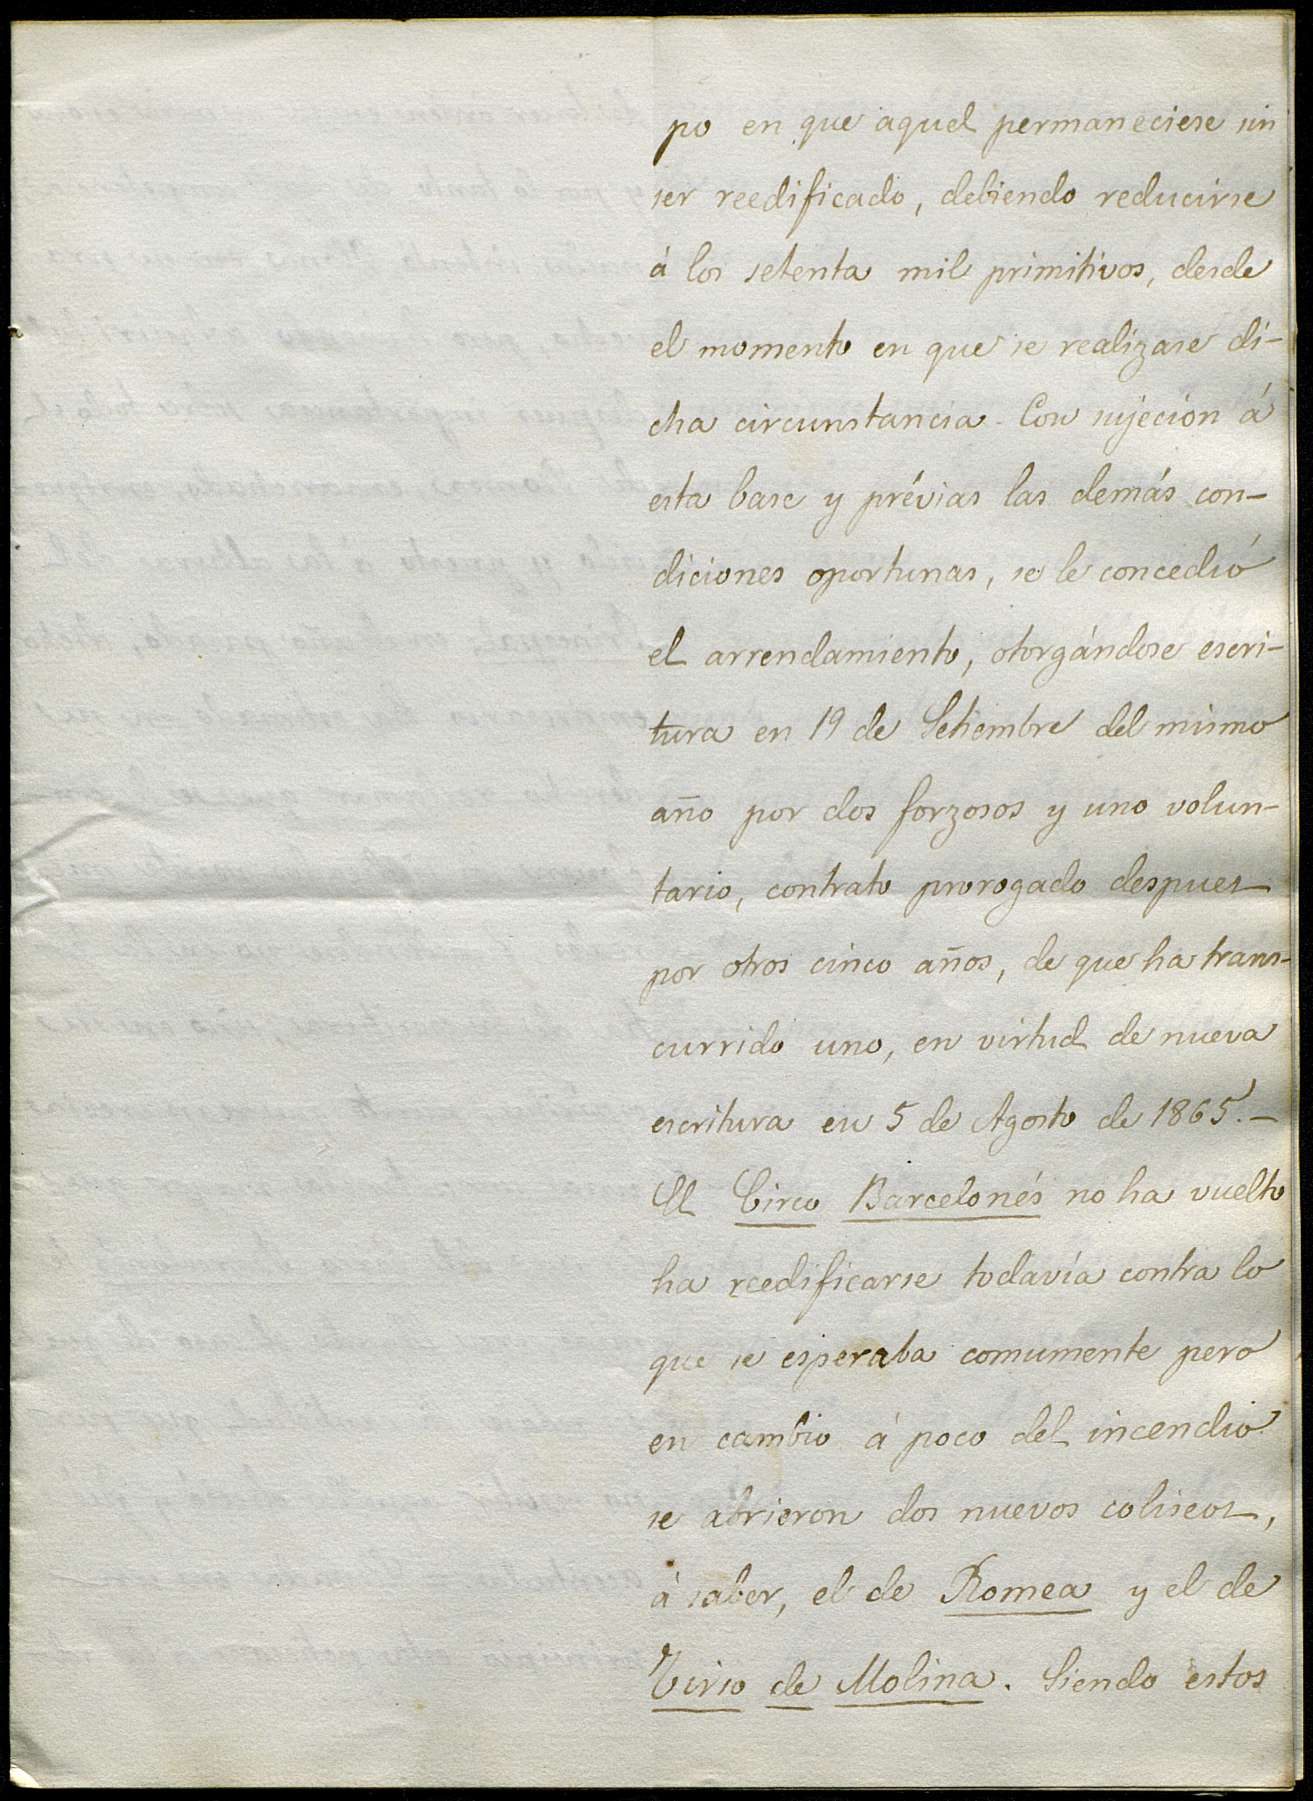 po en que aquel permaneciese sin
ser reedificado, debiendo reducirse
á los setenta mil primitivos, desde
el momento en que se realizase di-
cha circunstancia. Con sujecion á
esta base y prévias las demás con-
diciones oportunas, se le concedió
el arrendamiento, otorgándose escri-
tura en 19 de Setiembre del mismo
año por dos forzosos y uno volun-
tario, contrato prorogado despues
por otros cinco años, de que ha trans-
currido uno, en virtud de nueva
escritura en 5 de Agosto de 1865.—
El Circo Barcelonés no ha vuelto
ha reedificarse todavía contra lo
que se esperaba comumente pero
en cambio á poco del incendio
se abrieron dos nuevos coliseos,
á saber, el de Romea y el de
Tirso de Molina. Siendo estos